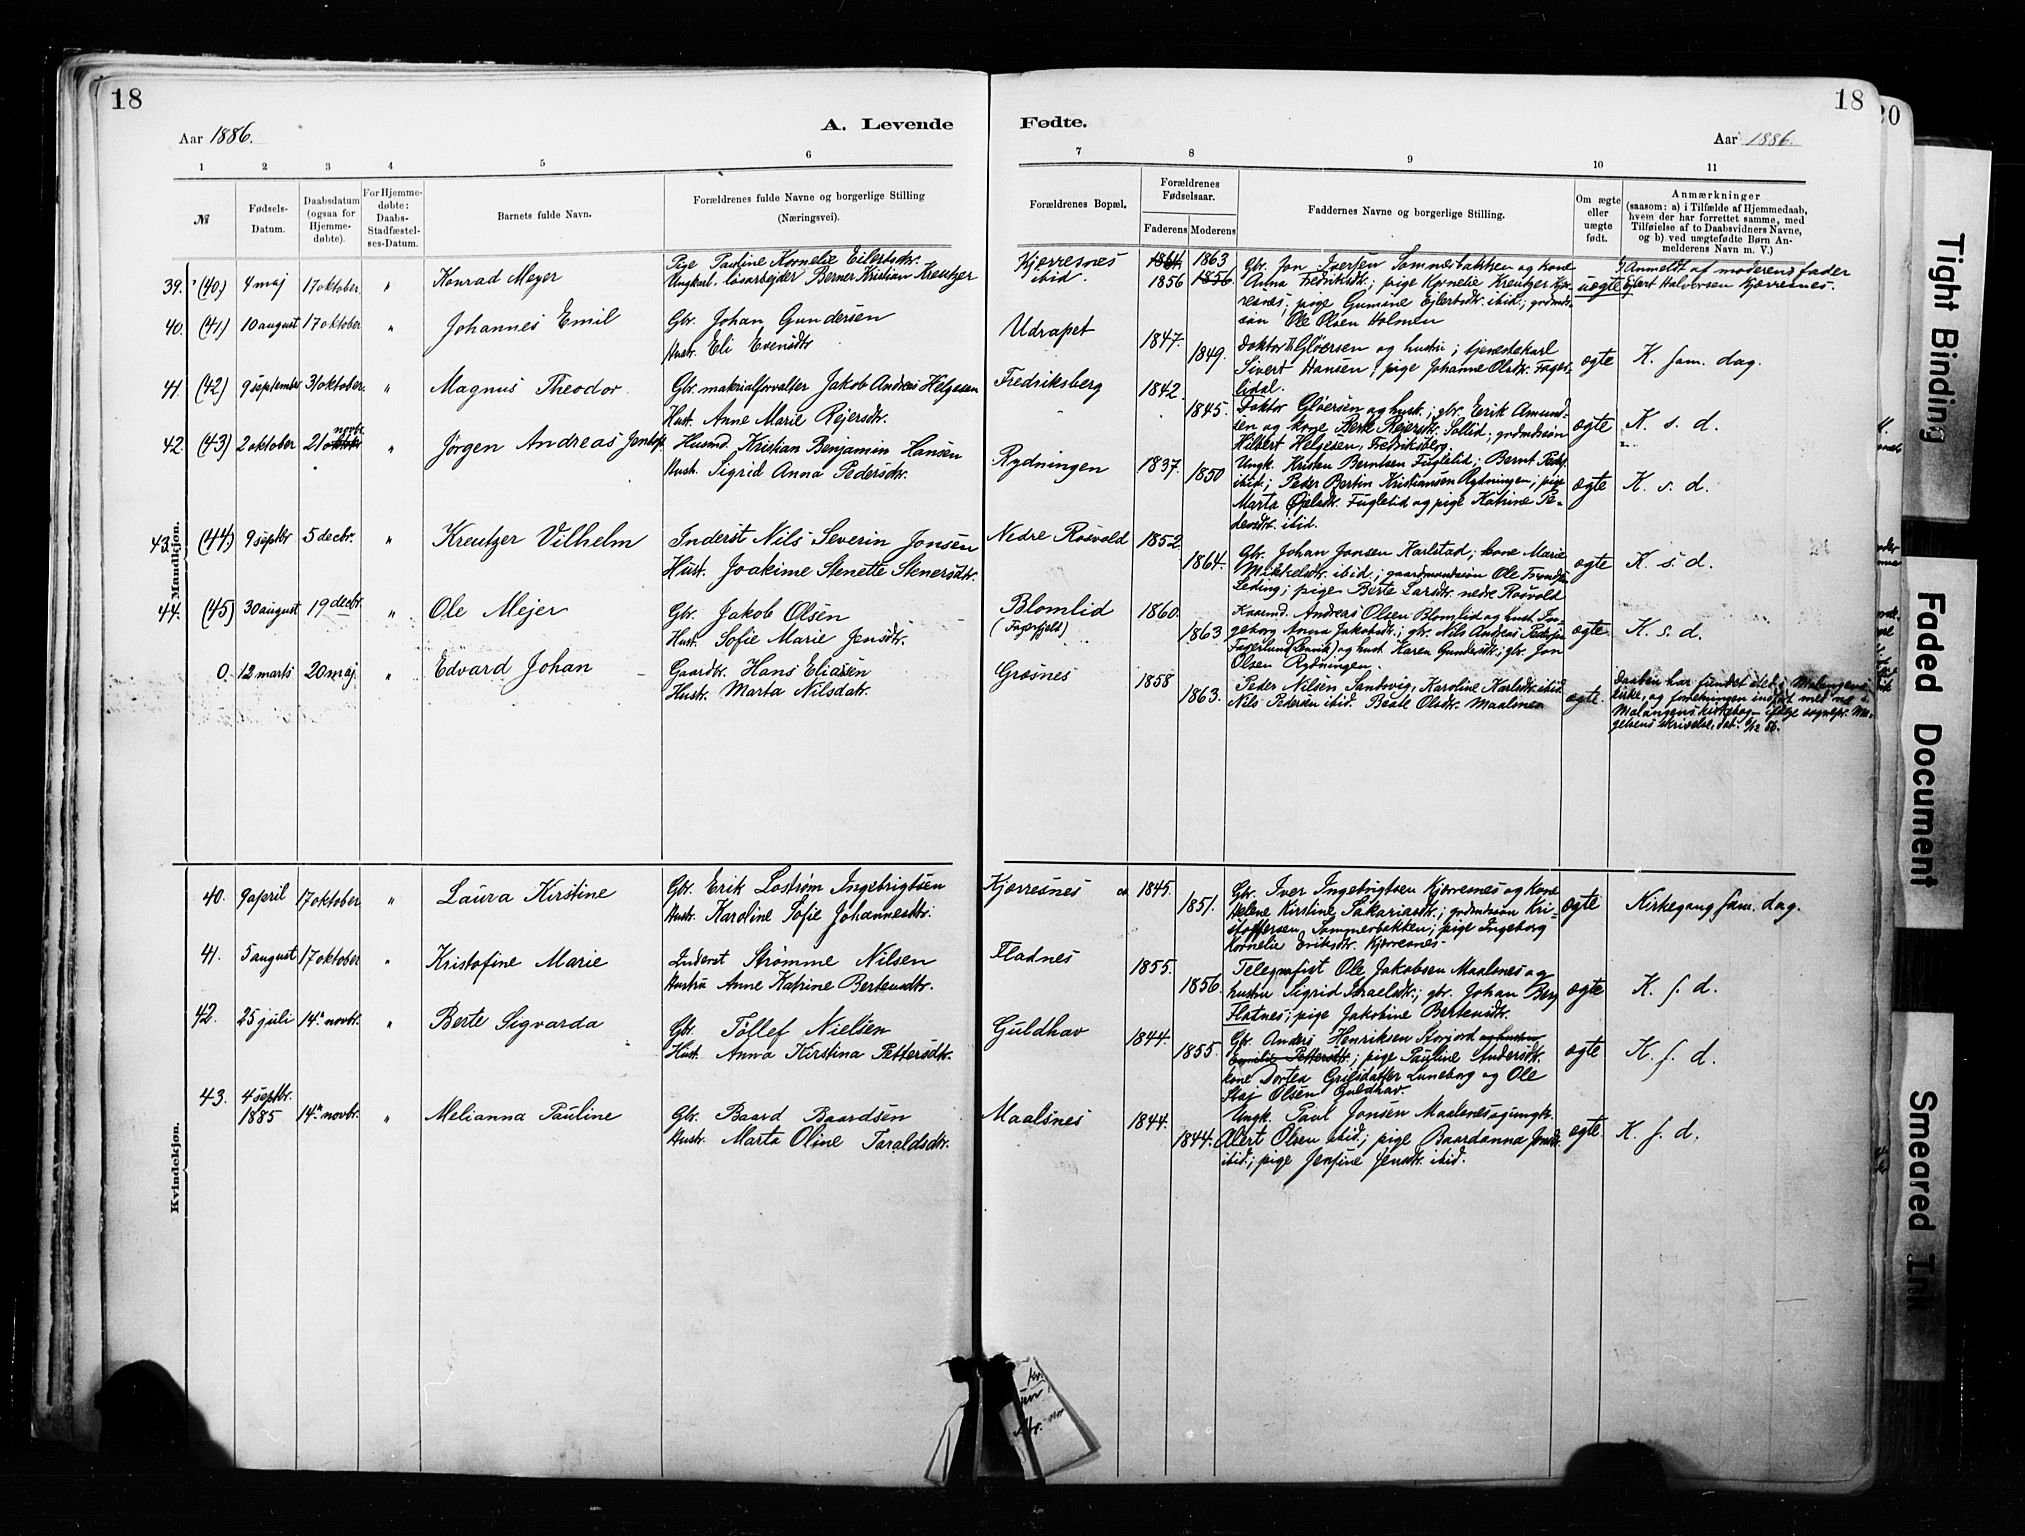 18
Aar 1886.
A. Levende
Fødte.
18
Aar 1886.
20
1
2
3
4
5
6
7
8
9
10
11
№
Fødsels-
Datum.
Daabsdatum
(ogsaa for
Hjemme-
døbte).
For Hjemme-
døbte:
Daabs-
Stadfæstel-
ses-Datum.
Barnets fulde Navn.
Forældrenes fulde Navne og borgerlige Stilling
(Næringsvei).
Forældrenes Bopæl.
Forældrenes
Fødselsaar.
Faderens
Moderens
Faddernes Navne og borgerlige Stilling.
Om ægte
eller
uægte
født.
Anmærkninger
(saasom: a) i Tilfælde af Hjemmedaab,
hvem der har forrettet samme, med
Tilføielse af to Daabsvidners Navne,
og b) ved uægtefødte Børn An-
melderens Navn m. V.)
Mandkjøn.
39. (40) 4 maj 17 oktober " Konrad Meyer
Pige Pauline Kornelie Eilertsdtr.
Ungkarl, løsarbejder Berner Kristian Kreutzer
Kjærresnes
ibid
1864 1863
1856 1856
Gbr. Jon Iversen Sommerbakken og kone
Anna Fredriksdtr.; pige Kornelie Kreutzer Kjær-
resnes; pige Gumine Ejlertsdtr. ibid.; grdmds-
søn Ole Olsen Holmen
uægte
Anmeldt af moderens fader
Ejlert Halvorsen Kjærresnes.
40. (41) 10 august 17 oktober " Johannes Emil
Gbr. Johan Gundersen
Hustr. Eli Evensdtr
Udrapet
1847.
1849.
Doktor Gløersen og hustru; tjenestekarl
Sivert Hansen; pige Johanne Olsdtr. Fager-
lidal.
ægte
K. sam. dag.
41. (42) 9 september 31 oktober. " Magnus Theodor
Gbr. matrialforvalter Jakob Andreas Helgesen
Hust. Anne Marie Rejersdtr.
Fredriksberg
1842.
1845.
Doktor Gløersen og hust.; gbr. Eerik Amund-
sen og kone Berte Rejersdtr. Sollid; grdmdssøn
Hilbert Helgesen, Fredriksberg.
ægte
K. s. d.
42. (43) 2 oktober 21 oktober novbr. " Jørgen Andreas Jentoft
Husmd. Kristian Benjamin Hansen
Hust. Sigrid Anna Pedersdtr.
Rydningen
1837.
1850
Ungk. Kristen Berntsen Fuglelid; Bernt Peder
ibid; Peder Bertin Kristiansen Rydningen; pige
Marta Fuglelid og pige Katrine Pe-
dersdtr. ibid.
ægte
K. s. d.
43. (44) 9 septbr 5 decbr. " Kreutzer Vilhelm
Inderst Nils Severin Jonsen
Hust. Joakime Stenette Stenersdtr.
Nedre Rosvold
1852.
1864.
Gbr. Johan Jonsen Karlstad; kone Marie
Mikkelsdtr. ibid.; gaardmandssøn Ole
Leding; pige Berte Larsdtr. nedre Rosvold
ægte
K. s. d.
44. (45) 30 august 19 decbr. " Ole Mejer
Gbr. Jakob Olsen
Hust. Sofie Marie Jensdtr.
Blomlid
(Fagerfjeld)
1860.
1863.
Andreas Olsen Blomlid og hust. In-
geborg Anna Jakobsdtr.; gbr. Nils Andreas Pedersen
Fagerlund (Lenvik) og hust. Karen Gundersdtr.; gbr. Jon
Olsen Rydningen.
ægte
K. s. d.
0. 12 marts 20 maj " Edvard Johan
Gaardbr. Hans Eliasen
Hustr. Marta Nilsdatr.
Grøsnes
1858
1863.
Peder Nilsen Sandvig, Karoline Karlsdtr. ibid.
Nils Pedersen ibid. Beate Olsdtr. Maalsnes
ægte.
Daaben har fundet sted i Malangens
kirke, og forretningen indført med no i
Malangens kirkebog – ifølge sognepr. Ma-
gelsens skrivelse, dat.
Kvindekjøn.
40. 9 april 17 oktober " Laura Kirstine
Gbr. Erik Lostrøm Ingebrigtsen
Hustr. Karoline Sofie Johannesdtr.
Kjærresnes
1845.
1851.
Gbr. Iver Ingebrigtsen Kjærresnes og kone
Helene Kirstine Sakariasdtr.; grdmdssøn Kri-
stoffersen Sommerbakken; pige Ingeborg
Kornelie Eriksdtr. Kjærresnes.
ægte
Kirkegang sam. dag.
41. 5 august 17 oktober " Kristofine Marie
Inderst Strømme Nilsen
Hustru Anne Katrine Bertensdtr.
Fladnes
1855.
1856.
Telegrafist Ole Jakobsen Maalsnes og
hustru Sigrid Israelsdtr.; gbr. Johan Berg
Flatnes; pige Jakobine Bertensdtr.
ægte
K. s. d.
42. 25 juli 14. novbr. " Berte Sigvarda
Gbr. Tollef Nielsen
Hust. Anna Kirstina Pettersdtr.
Guldhav
1844.
1855.
Gbr. Anders Henriksen Storjord og hustru
Emilie Pettersdtr.; pige Pauline Andersdtr.
kone Dortea Grilsdatter Luneborg og Ole
Olsen Guldhav.
ægte
K. s. d.
43. 4 septbr. 1885 14. novbr. " Melianna Pauline
Gbr. Baard Baardsen
Hustr. Marta Oline Taraldsdtr.
Maalsnes
1844.
1844.
Ungk. Paul Jonsen Maalsnes og ungk.
Albert Olsen ibid.; pige Baardanna Jonsd.
ibid.; pige Jensine Jensdtr. ibid.
ægte.
K. s. d.
Tight Binding
Faded Document
Smeared Ink